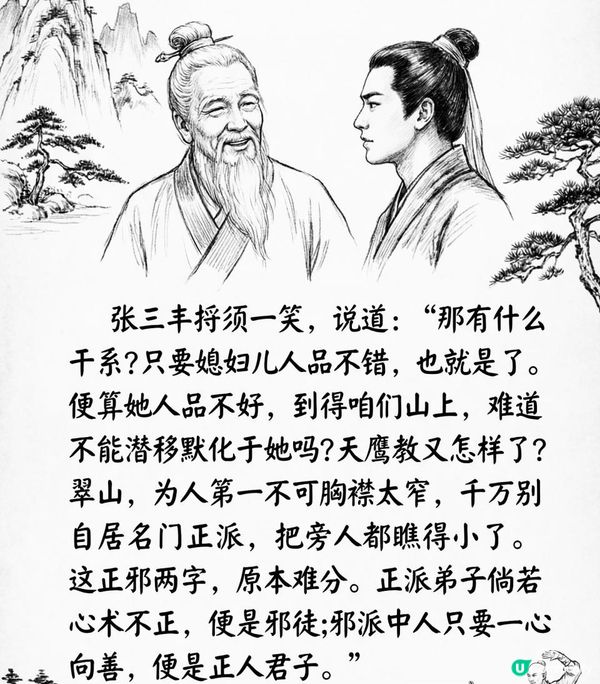 张三丰捋须一笑，说道：“那有什么
干系？只要媳妇儿人品不错，也就是了。
便算她人品不好，到得咱们山上，难道
不能潜移默化于她吗？天鹰教又怎样了？
翠山，为人第一不可胸襟太窄，千万别
自居名门正派，把旁人都瞧得小了。
这正邪两字，原本难分。正派弟子倘若
心术不正，便是邪徒；邪派中人只要一心
向善，便是正人君子。”